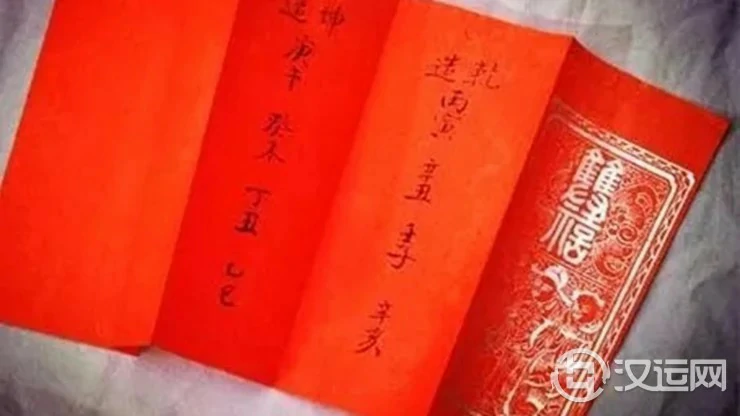 乾
造丙寅 辛丑 壬子 辛亥
坤
造庚午 癸未 丁丑 乙巳
汉运网